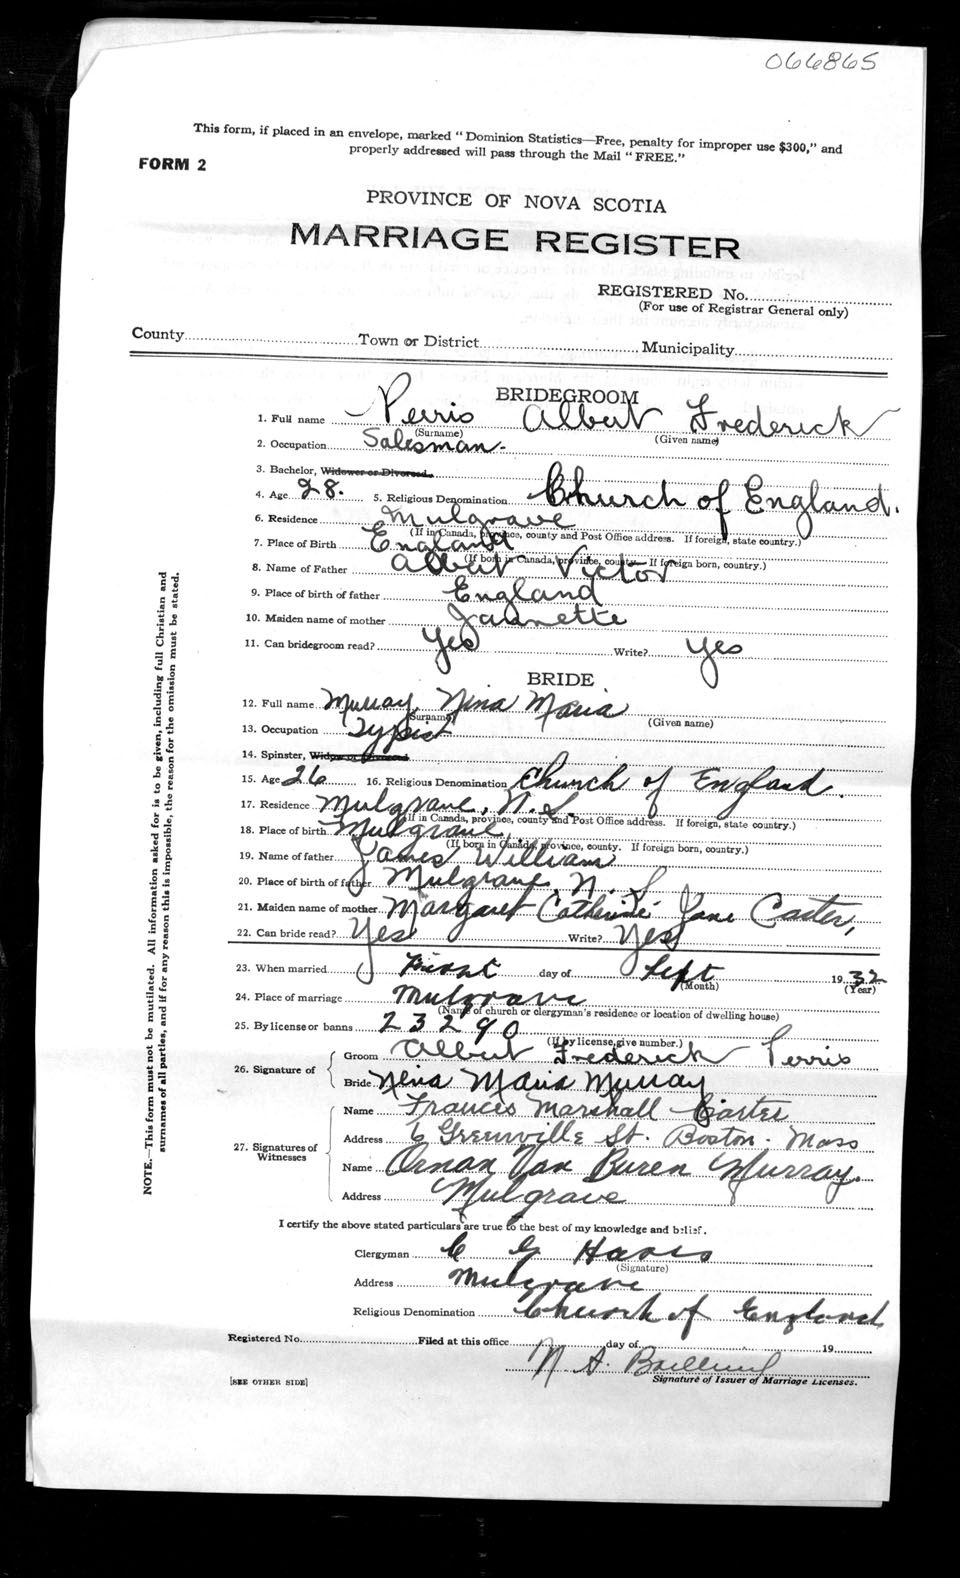 066865
This form, if placed in an envelope, marked "Dominion Statistics—Free, penalty for improper use $300," and
properly addressed will pass through the Mail "FREE."
FORM 2
PROVINCE OF NOVA SCOTIA
MARRIAGE REGISTER
REGISTERED No.
(For use of Registrar General only)
County Town or District Municipality
BRIDEGROOM
1. Full name Perris Albert Frederick
(Surname) (Given name)
2. Occupation Salesman.
3. Bachelor, Widower or Divorced.
4. Age 28. 5. Religious Denomination Church of England.
6. Residence Mulgrave
(If in Canada, province, county and Post Office address. If foreign, state country.)
7. Place of Birth England
(If born in Canada, province, county. If foreign born, country.)
8. Name of Father Albert Victor
9. Place of birth of father England
10. Maiden name of mother Jannette
11. Can bridegroom read? Yes Write? Yes
BRIDE
12. Full name Murray, Nina Maria
(Surname) (Given name)
13. Occupation Typist
14. Spinster, Widow or Divorced
15. Age 26 16. Religious Denomination Church of England.
17. Residence Mulgrave, N.S.
(If in Canada, province, county and Post Office address. If foreign, state country.)
18. Place of birth Mulgrave,
(If born in Canada, province, county. If foreign born, country.)
19. Name of father James William
20. Place of birth of father Mulgrave, N.S
21. Maiden name of mother Margaret Catherine Jane Carter,
22. Can bride read? Yes Write? Yes
23. When married First day of Sept 1932
(Month) (Year)
24. Place of marriage Mulgrave
(Name of church or clergyman's residence or location of dwelling house)
25. By license or banns 23290
(If by license, give number.)
26. Signature of Groom Albert Frederick Perris
Bride Nina Maria Murray
27. Signatures of Witnesses
Name Frances Marshall Carter
Address 6 Greenville St. Boston. Mass
Name Ornan Van Buren Murray.
Address Mulgrave
I certify the above stated particulars are true to the best of my knowledge and belief.
Clergyman C G
(Signature)
Address Mulgrave
Religious Denomination Church of England
Registered No. Filed at this office day of 19
N A
Signature of Issuer of Marriage Licenses.
[SEE OTHER SIDE]
NOTE.—This form must not be mutilated. All information asked for is to be given, including full Christian and
surnames of all parties, and if for any reason this is impossible, the reason for the omission must be stated.